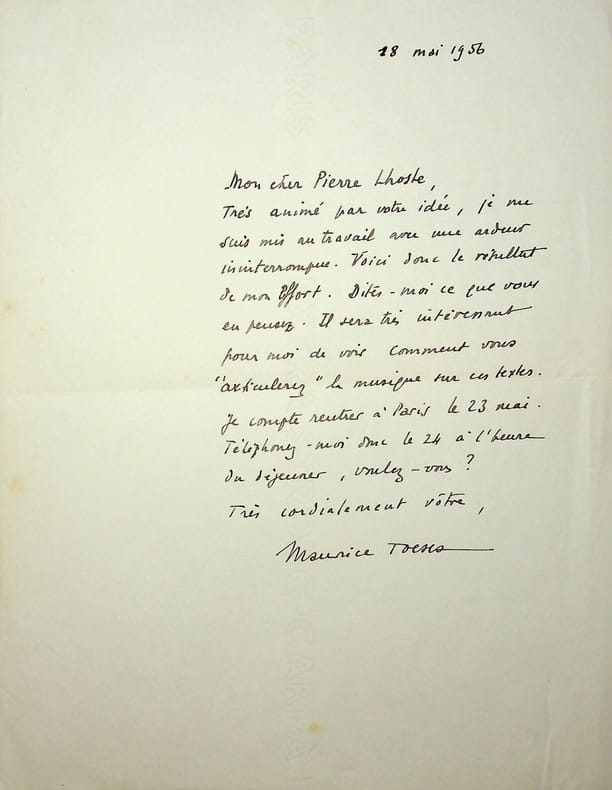 18 mai 1956
Mon cher Pierre Lhoste,
Très animé par votre idée, je me
suis mis au travail avec une ardeur
ininterrompue. Voici donc le résultat
de mon Effort. Dites-moi ce que vous
en pensez. Il sera très intéressant
pour moi de voir comment vous
"articulerez" la musique sur ces textes.
Je compte rentrer à Paris le 23 mai.
Téléphonez-moi donc le 24 à l'heure
du déjeuner, voulez-vous ?
Très cordialement vôtre,
Maurice Toesca